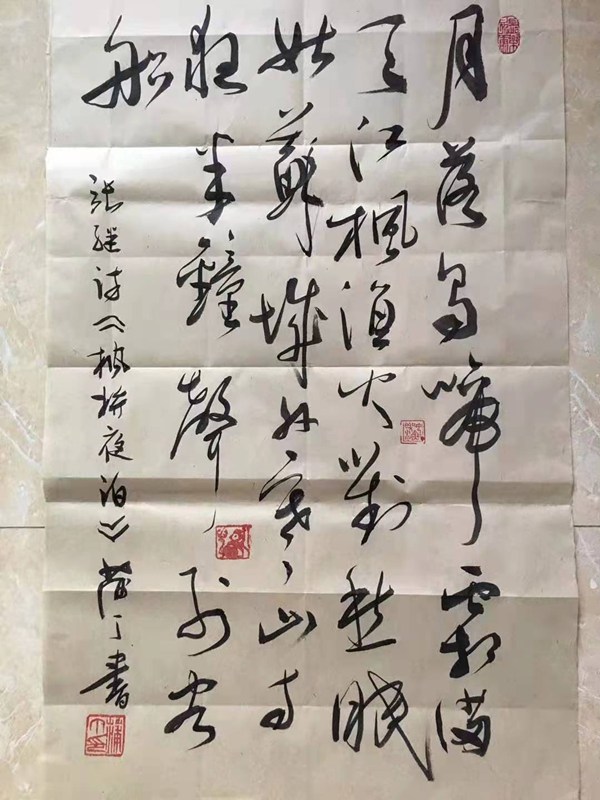 月落烏啼霜滿
天江楓渔火對愁眠
姑蘇城外寒山寺
夜半鐘聲到客
船
张继诗《枫桥夜泊》蒲丁書